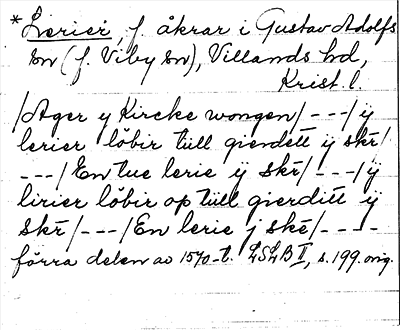 *Lerier, f. åkrar i Gustav Adolfs
sn (f. Viby sn), Villands hd,
Krist. l.
/Ager y Kircke wongen/---/ÿ
lerier löbir tüll gierdett ÿ skr̄/
---/En tue lerie ÿ skr̄/---/ÿ
lirier löbir op tüll gierditt ÿ
skr̄/---/En lerie j skē/----
förra delen av 1570-t. LSLB II, s. 199. orig.